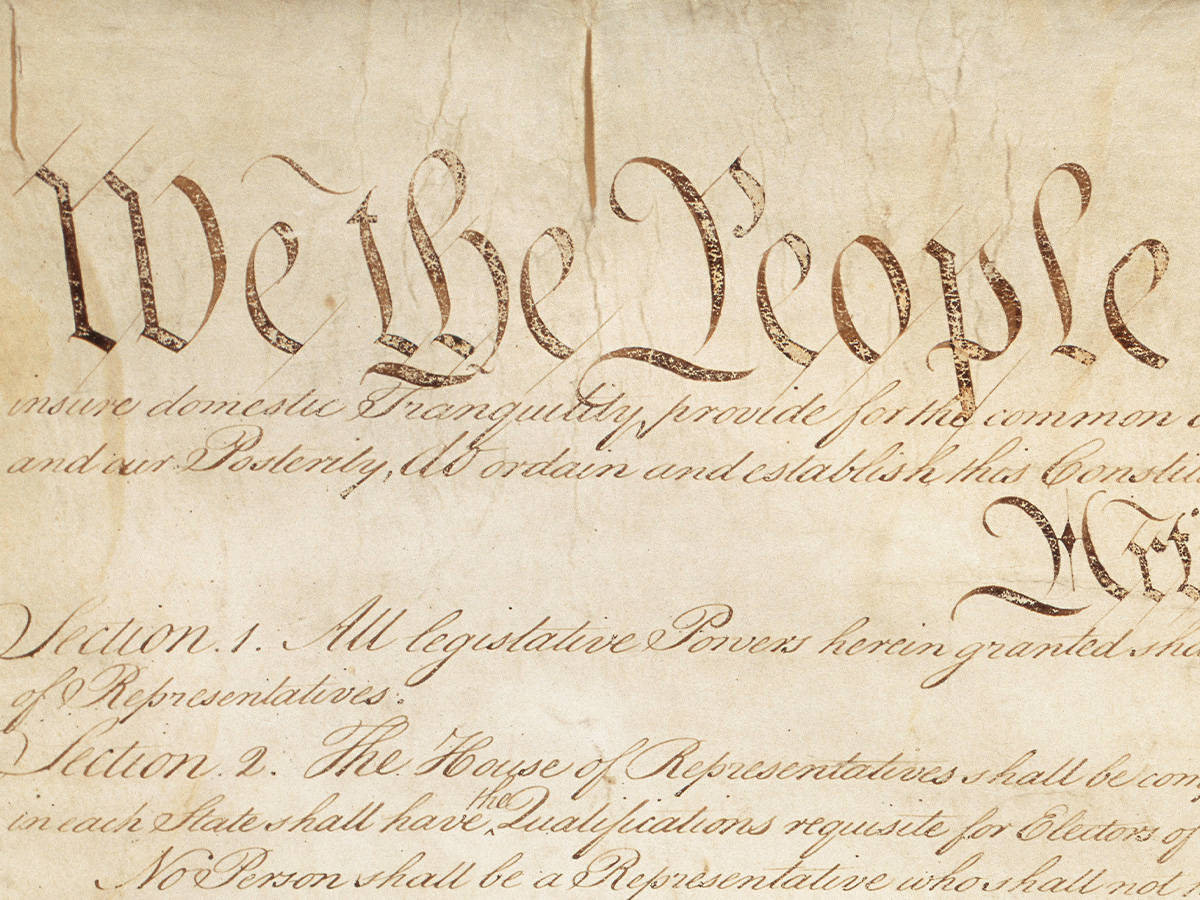 We the People
insure domestic Tranquility, provide for the common
and our Posterity, do ordain and establish this Constit
Arti
Section. 1. All legislative Powers herein granted sha
of Representatives.
Section. 2. The House of Representatives shall be com
the
in each State shall have Qualifications requisite for Electors of
No Person shall be a Representative who shall not